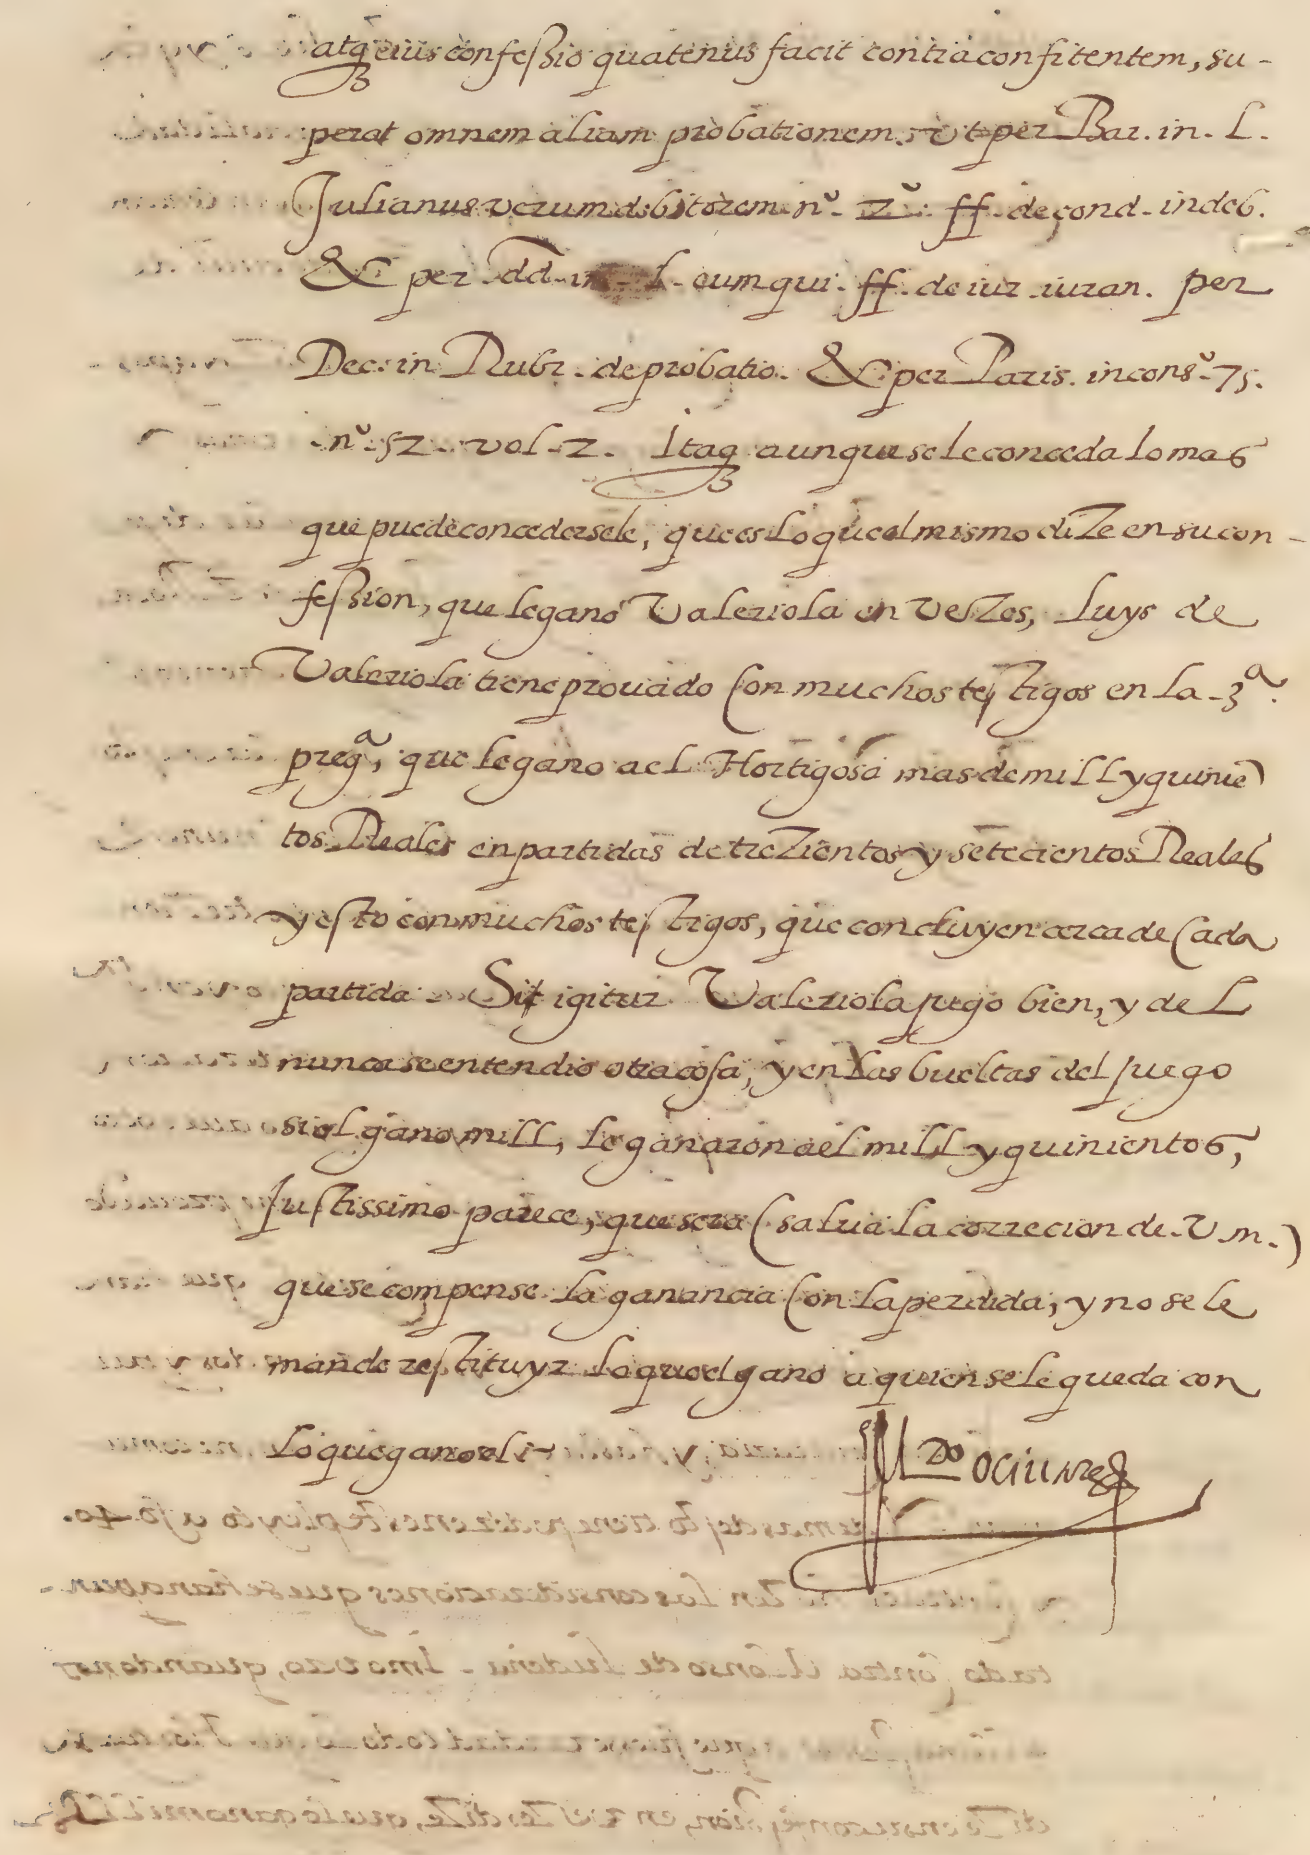 atq̃ eius confessio quatenus facit contra confitentem, su-
perat omnem aliam probationem. vt per Bar. in. l.
Julianus verum debitorem nº. 2. ff. de cond. indeb.
& per dd. in. l. eum qui. ff. de iur. iuran. per
Dec. in Rubr. de probatio. & per Paris. in consº. 75.
nº. 52. vol. 2. Itaq̃ aunque se le conceda lo mas
que puede concedersele, que es lo que el mismo dize en su con-
fession, que le ganó Valeriola en vezes, Luys de
Valeriola tiene prouado con muchos testigos en la. 3ª.
pregª, que le gano a el Hortigosa mas de mill y quinie
tos Reales en partidas de trezientos y setecientos Reales
y esto con muchos testigos, que concluyen cerca de cada
partida. Si igitur Valeriola jugo bien, y del
nunca se entendio otra cosa, y en las bueltas del juego
si el gano mill, le ganaron a el mill y quinientos,
Justissimo parece, que sera (salua la correcion de. V. m.)
que se compense la ganancia con la perdida, y no se le
mande restituyr lo que el gano a quien se le queda con
lo que gano el